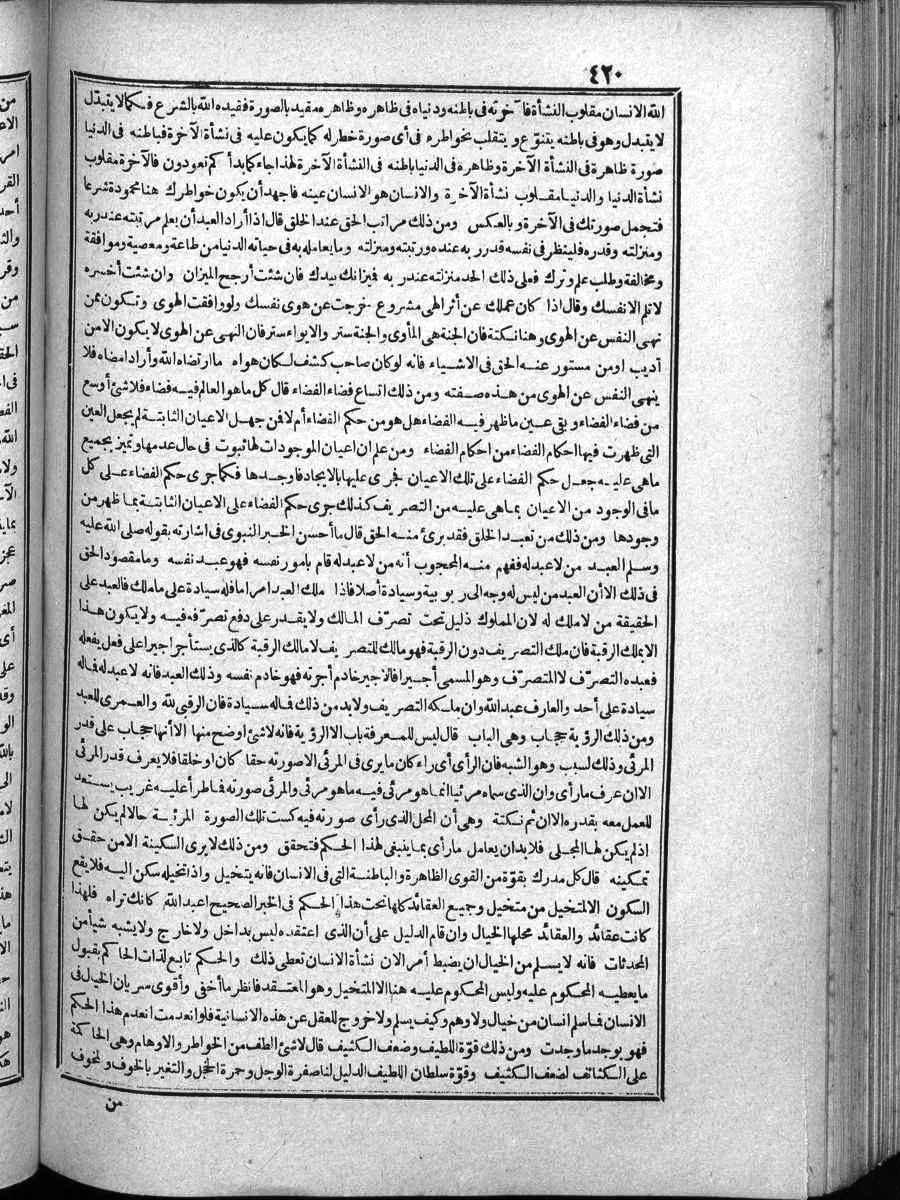 ٤٢٠
الله الانسان مقلوب النشأة فا خرته فى باطنه ودنياه فى ظاهره وظاهره مقيد بالصورة فقيده الله بالشرع فكما لا يتبدل
لا يتبدل وهو فى باطنه يتنوّع ويتقلب بخواطره فى أى صورة خطر له كما يكون عليه فى نشأة الآخرة فباطنه فى الدنيا
صورة ظاهرة فى النشأة الآخرة وظاهره فى الدنيا باطنه فى النشأة الآخرة لهذا جاء كما بدأ كم تعودون فالآخرة مقلوب
نشأة الدنيا والدنيا مقلوب نشأة الآخرة والانسان هو الانسان عينه فاجهد أن يكون خواطرك هنا محمودة شرعا
فتجمل صورتك فى الآخرة وبالعكس ومن ذلك مراتب الحق عند الخلق قال اذا أراد العبد أن يعلم مرتبته عند ربه
ومنزلته وقدره فلينظر فى نفسه قدر ربه عنده ورتبته ومنزلته وما يعامله به فى حياته الدنيا من طاعة ومعصية وموافقة
ومخالفة وطلب علم وترك فعلى ذلك الحد منزلته عند ربه فيزانك بيدك فان شئت أرجح الميزان وان شئت أخسره
لا تلم الا نفسك وقال اذا كان عملك عن أثر الهى مشروع خرجت عن هوى نفسك ولو رافقت الهوى وتكون ممن
نهى النفس عن الهوى وهنا نكتة فان الجنة هى المأوى والجنة ستر والايواء ستر فان النهى عن الهوى لا يكون الا من
آديب اومن مستور عنه الحق فى الاشياء فانه لو كان صاحب كشف لكان هواه ما ارتضاه الله وأراد امضاه فلا
ينهى النفس عن الهوى من هذه صفته ومن ذلك اتساع فضاء القضاء قال كل ما هو العالم فيه قضاء فلا شئ أوسع
من قضاء القضاء وبقى عين ما ظهر فيه القضاء هل هو من حكم القضاء أم لا فن جهل الاعيان الثابتة لم يجعل العين
التى ظهرت فيها أحكام القضاء من احكام القضاء ومن علم ان اعيان الموجودات لها ثبوت فى حال عدمها وتميز بجميع
ماهى عليه جعل حكم القضاء على تلك الاعيان فجرى عليها بالايجاد فاوجدها فكما جرى حكم القضاء على كل
ما فى الوجود من الاعيان بماهى عليه من التصريف كذلك جرى حكم القضاء على الاعيان الثابتة بما ظهر من
وجودها ومن ذلك من تعبد الخلق فقد برئ منه الحق قال ما أحسن الخبر النبوى فى اشارته بقوله صلى الله عليه
وسلم العبد من لا عبد له ففهم منه المحجوب أنه من لا عبد له قام بامور نفسه فهو عبد نفسه وما مقصود الحق
فى ذلك الا أن العبد من ليس له وجه الى ربوبية وسيادة أصلا فاذا ملك العبد امرا ما فله سيادة على ما ملك فالعبد على
الحقيقة من لا ملك له لان المملوك ذليل تحت تصرّف المالك ولا يقدر على دفع تصرّفه فيه ولا يكون هذا
الا بملك الرقبة فان ملك التصريف دون الرقبة فهو مالك للتصريف لا مالك الرقبة كالذى يستأجر اجيرا على فعل يفعله
فعبده التصرّف لا المتصرّف وهو المسمى أجيرا فالاجير خادم أجرته فهو خادم نفسه وذلك العبد فانه لا عبد له فاله
سيادة على أحد والعارف عبد الله وان ملكه التصريف ولا بد من ذلك فاله سيادة فان الرقبى لله والعمرى للعبد
ومن ذلك الرؤية حجاب وهى الباب قال ليس للمعرفة باب الا الرؤية فانه لا شئ اوضح منها الا أنها حجاب على قدر
المرئى وذلك لسبب وهو الشبه فان الرأى أى راء كان ما يرى فى المرئى الا صورته حقا كان او خلقا فلا يعرف قدر المرئى
الا ان عرف ما رأى وان الذى سماه مرئيا انما هو مرئى فيه ما هو مرئى والمرئى صورته فما طرأ عليه غريب يستعد
للعمل معه بقدره الا ان تم نكتة وهى أن المحل الذى رأى صورته فيه كست تلك الصورة المرئية حالا لم يكن لها
اذ لم يكن لها المجلى فلا بد ان يعامل ما رأى بما ينبغى لهذا الحكم فتحقق ومن ذلك لا يرى السكينة الا من حقق
تمكينه قال كل مدرك بقوّة من القوى الظاهرة والباطنة التى فى الانسان فانه يتخيل واذا تخيله سكن اليه فلا يقع
السكون الا لمتخيل من متخيل وجميع العقائد كلها تحت هذا الحكم فى الخبر الصحيح اعبد الله كانك تراه فلهذا
كانت عقائد والعقائد محلها الخيال وان قام الدليل على أن الذى اعتقده ليس بداخل ولا خارج ولا يشبه شيأ من
المحدثات فانه لا يسلم من الخيال ان يضبط أمر الان نشأة الانسان تعطى ذلك والحكم تابع لذات الحاكم بقبول
ما يعطيه المحكوم عليه وليس المحكوم عليه هنا الا المتخيل وهو المعتقد فانظر ما أخفى وأقوى سريان الخيال فى
الانسان فما سلم انسان من خيال ولا وهم وكيف يسلم ولا خروج للعقل عن هذه الانسانية فلو انعدمت انعدم هذا الحكم
فهو بوجد ما وجدت ومن ذلك قوّة اللطيف وضعف الكثيف قال لا شئ الطف من الخواطر والاوهام وهى الحاكمة
على الكثائف لضعف الكثيف وقوّة سلطان اللطيف الدليل لنا صفرة الوجل وحمرة الخجل والتغير بالخوف والخوف
من